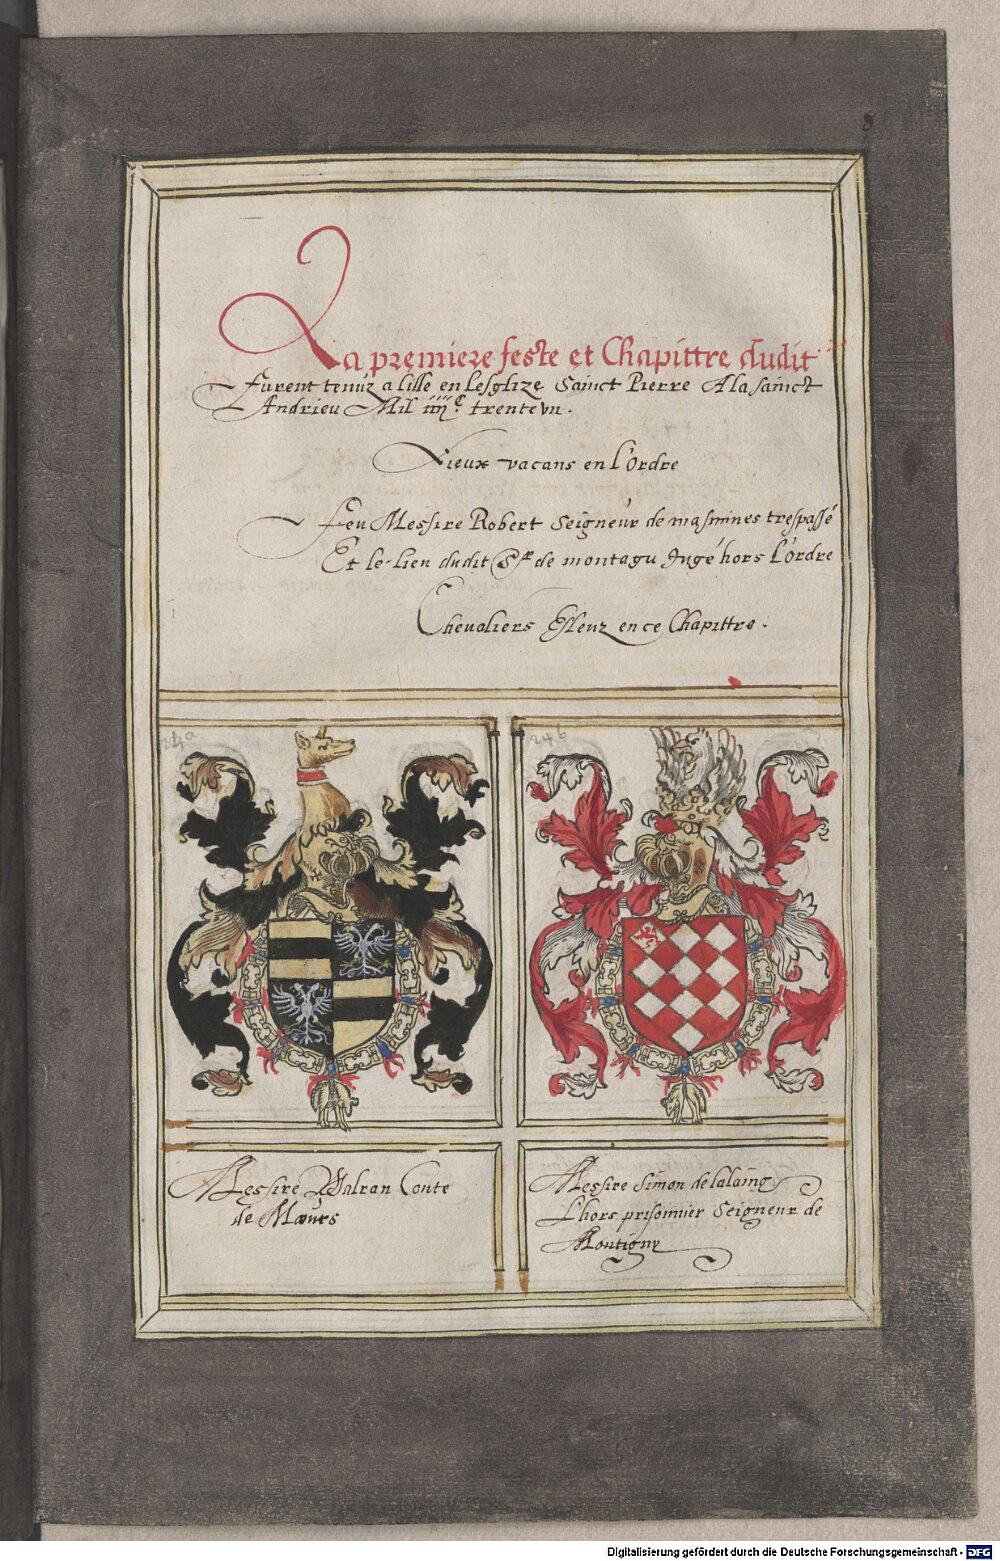 8
La premiere feste et Chapittre dudit
Furent tenuz a lille en lesglize Sainct Pierre Ala sainct
Andrieu Mil iiijc trente vn.
Lieux vacans en l'Ordre
Feu Messire Robert Seigneur de masmines trespassé
Et le lieu dudit Sr de montagu Jugé hors l'ordre
Chevaliers Esleuz en ce Chapittre.
24a
24b
Messire Walran Conte
de Mœurs
Messire Simon de lalaing
Lhors prisonnier Seigneur de
Montigny
Digitalisierung gefördert durch die Deutsche Forschungsgemeinschaft - DFG